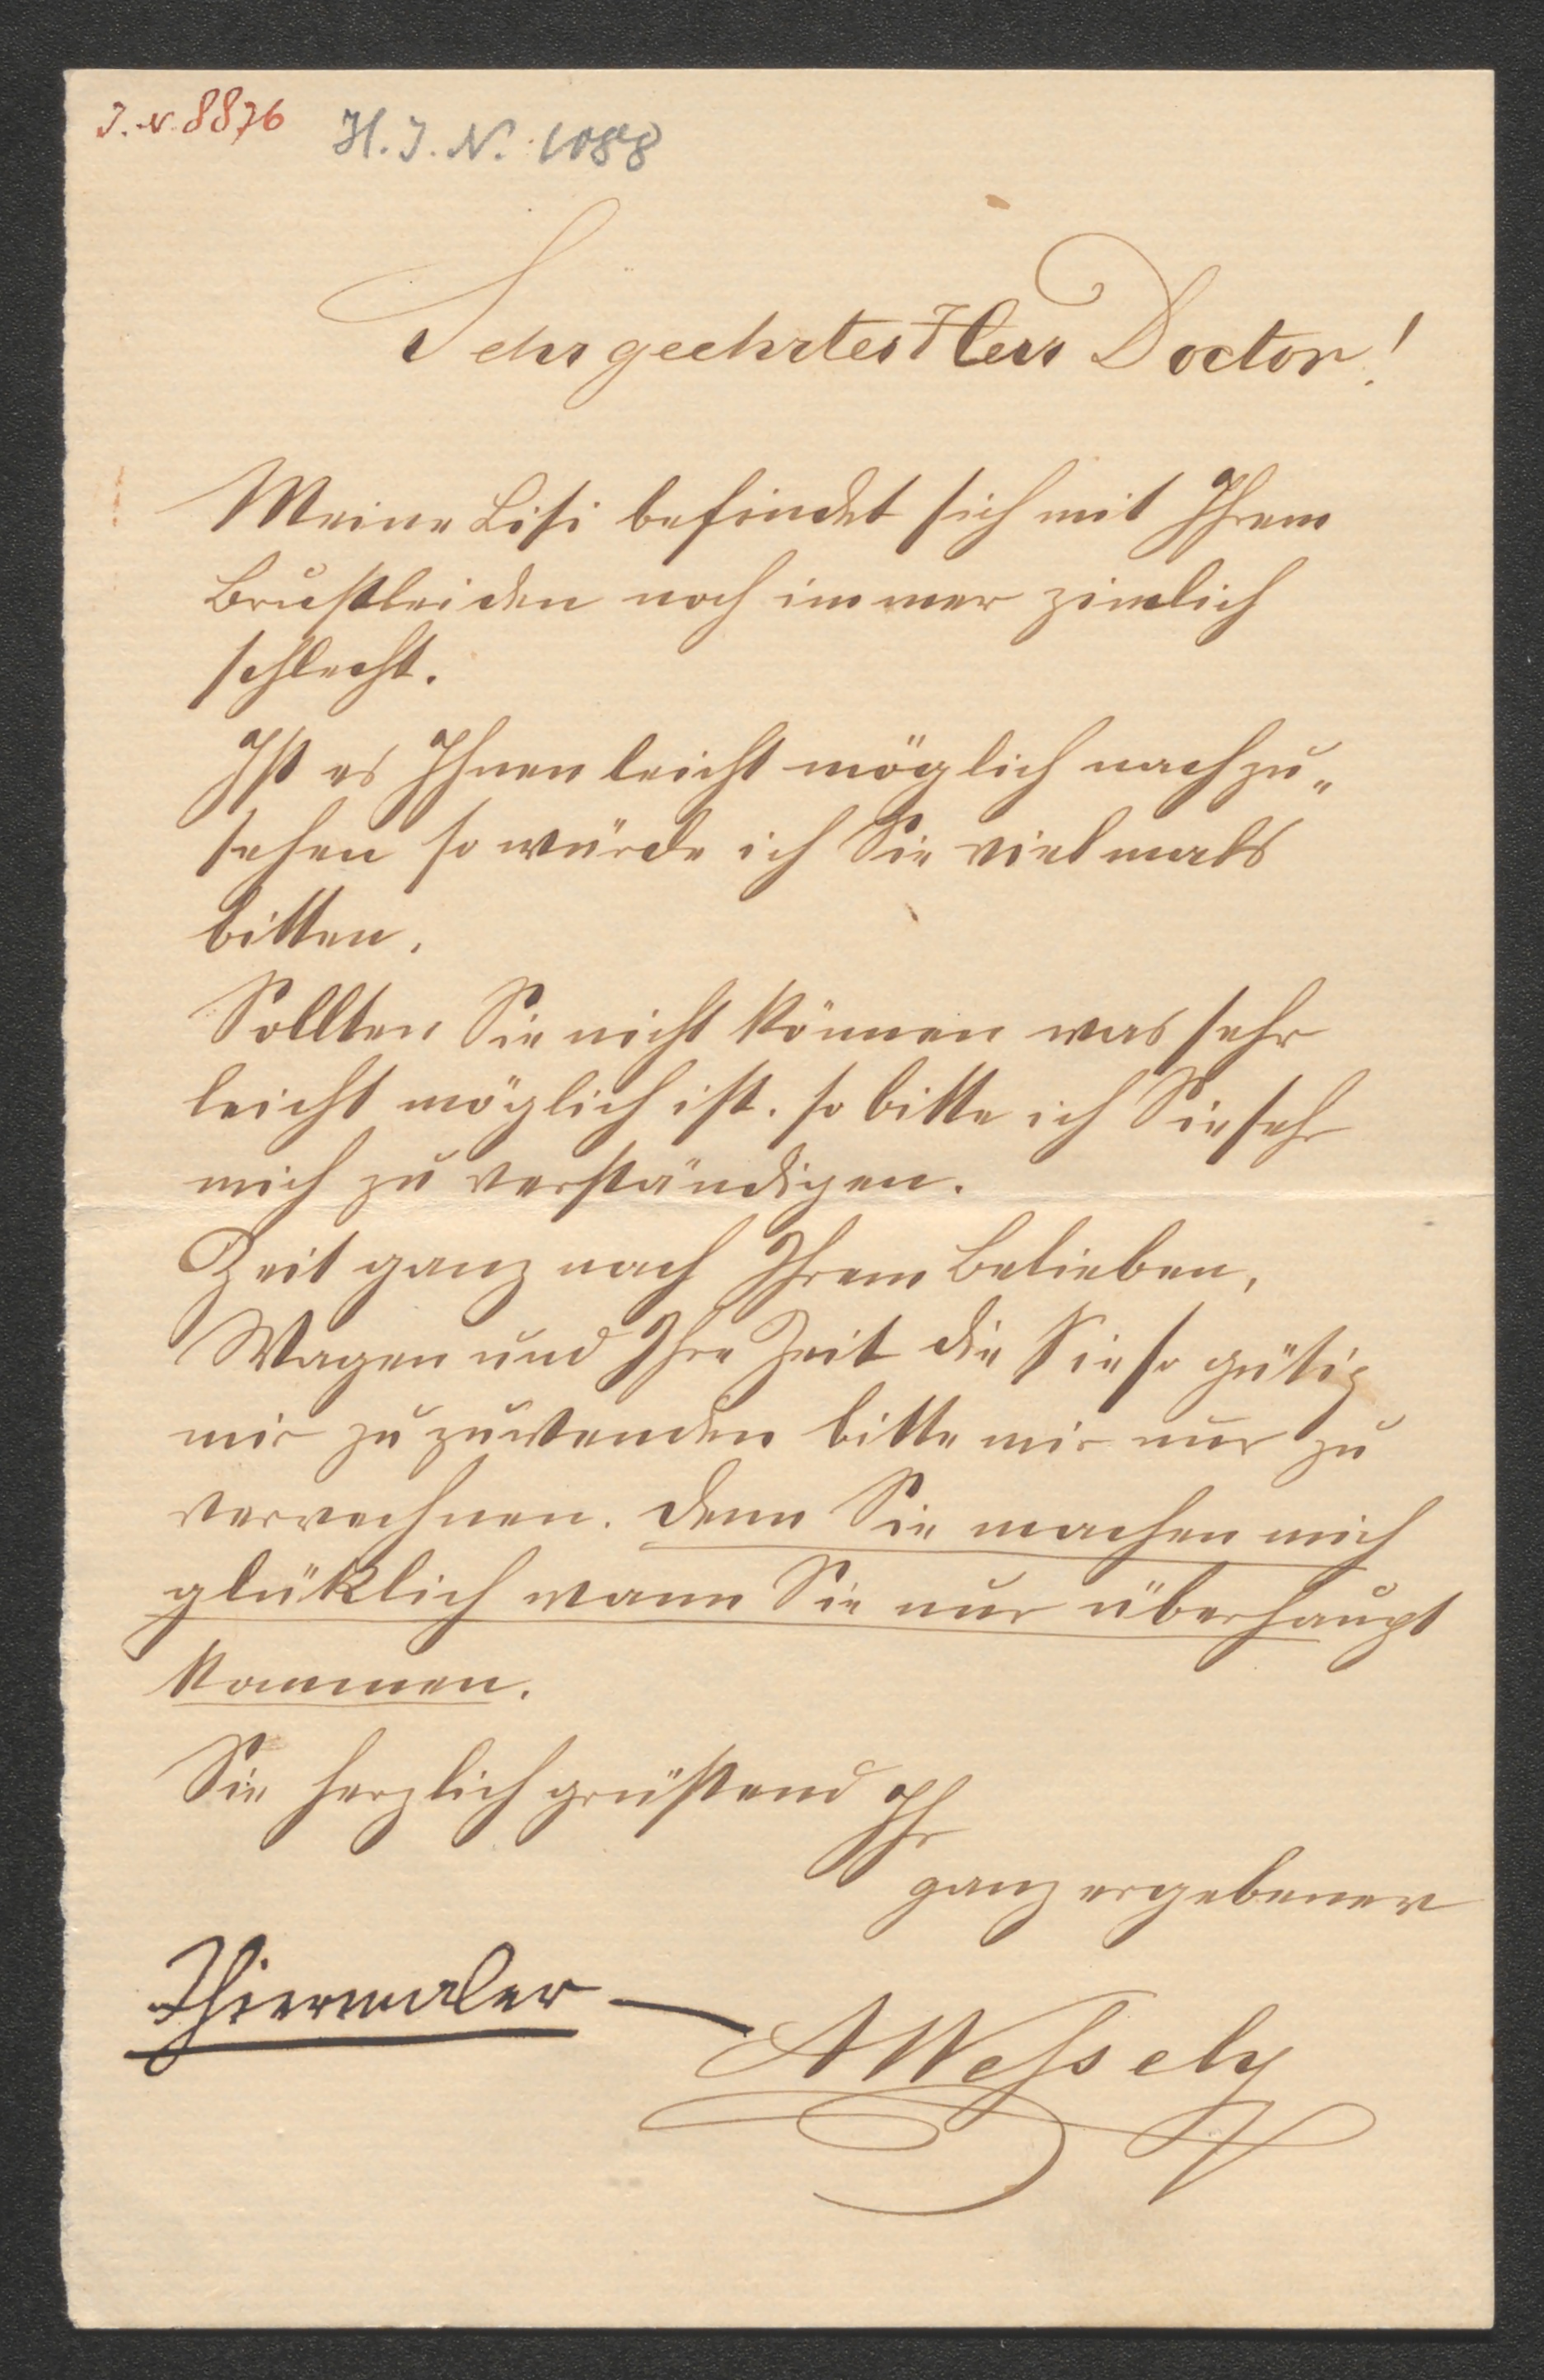 J. N. 8876 H. J. N. 1088
Sehrgeehrter Herr Doctor!
Meine Lisi befindet sich mit Ihrem
Brustleiden noch immer zimlich
schlecht.
Ist es Ihnen leicht möglich nachzu„
sehen so würde ich Sie vielmals
bitten.
Sollten Sie nicht können was sehr
leicht möglich ist. so bitte ich Sie sehr
mich zu verständigen.
Zeit ganz nach Ihrem Belieben,
Wagen und Ihre Zeit die Sie so gütig
mir zuzuwenden bitte mir nur zu
verrechnen. denn Sie machen mich
glüklich wann Sie nur überhaupt
kommen.
Sie herzlich grüßend Ihr
ganz ergebener
Thiermaler — AWessely